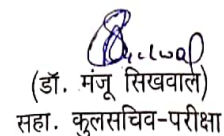 (डॉ. मंजू सिखवाल)
सहा. कुलसचिव-परीक्षा